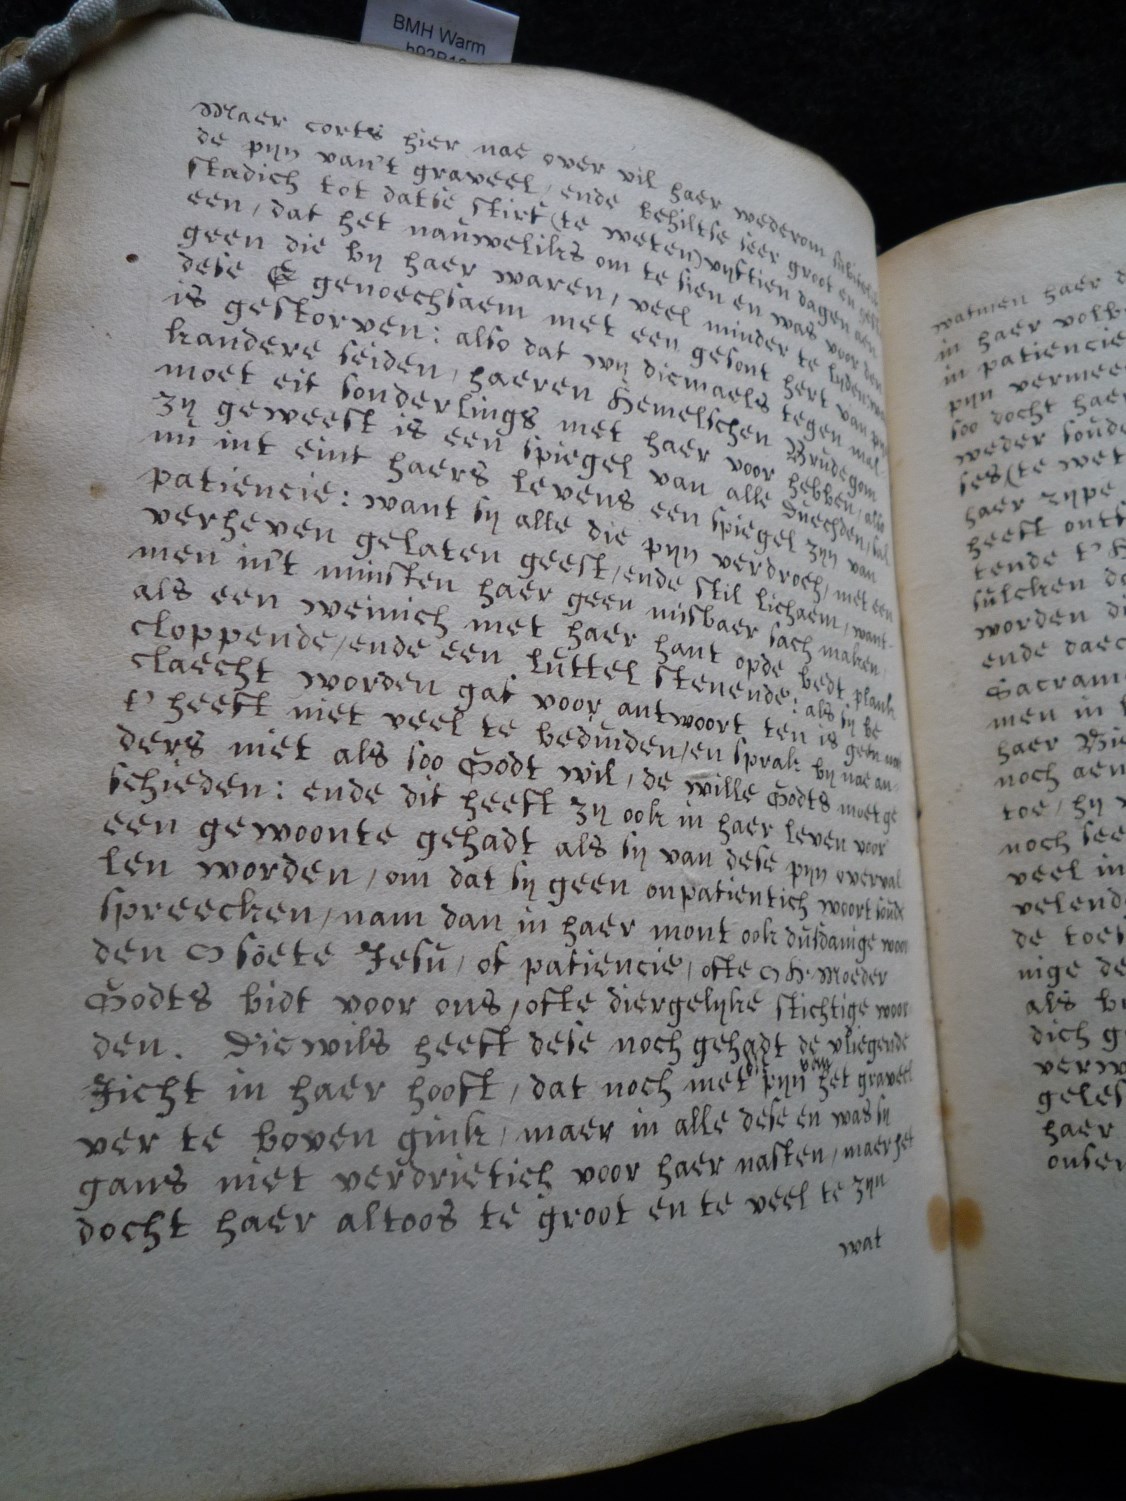 BMH Warm
Maer corts hier nae over vil haer wederom
de pijn van't graveel, ende behiltse seer groot en
stadich tot datse stirf (te weten) vijftien dagen aen
een, dat het nauweliks om te sien en was voor den
geen die bij haer waren, veel minder te lijden
dese E genoechsaem met een gesont hert van pijn
is gestorven: also dat wij diemaels tegen mal-
kandere seiden, haeren Hemelschen Brudegom
moet eit sonderlings met haer voor hebben, also
zij geweest is een spiegel van alle duechden, sal
nu int eint haers levens een spiegel zijn van
patiencie: want sij alle die pijn verdroch, met een
verheven gelaten geest, ende stil lichaem, want
men in't minsten haer geen misbaer sach maken,
als een weinich met haer hant opde bedt plank
cloppende, ende een luttel stenende: als sij be
claecht worden gaf voor antwoort ten is geen noot
t' heeft niet veel te beduiden, en sprak bij nae an-
ders niet als soo Godt wil, de wille Godts moet ge
schieden: ende dit heeft zij ook in haer leven voor
een gewoonte gehadt als sij van dese pijn overval
len worden, om dat sij geen onpatientich woort soude
spreecken, nam dan in haer mont ook dusdanige woor
den O soete Jesu, of patiencie, ofte O H. Moeder
Godts bidt voor ons, ofte diergelijke stichtige woor
den. Diewils heeft dese noch gehadt de vliegende
Jicht in haer hooft, dat noch met dit pijn van het graveel
ver te boven gink, maer in alle dese en was sij
gans niet verdrietich voor haer nasten, maer het
docht haer altoos te groot en te veel te zijn
wat
watmen haer
in haer
in patiencie
pijn
soo docht haer
weder
ses (te wet
haer zijpe
heeft
tende
sulcken
worden
ende
Sacram
men in
haer
noch aen
toe, hij
noch see
veel in
velend
de toe
nige de
als
dich
verw
geles
haer
onser